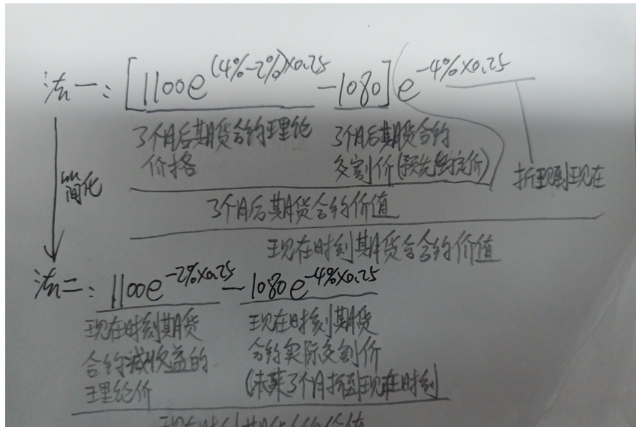 法一：[1100e^(4%-2%)×0.25 -1080]e^-4%×0.25
3个月后期货合约理论价格
3个月后期货合约交割价(预先约定价)
折现到现在
简化
3个月后期货合约价值
现在时刻期货合约价值
法二：1100e^-2%×0.25 -1080e^-4%×0.25
现在时刻期货合约减收益的理论价
现在时刻期货合约实际交割价(未来3个月折到现在时刻